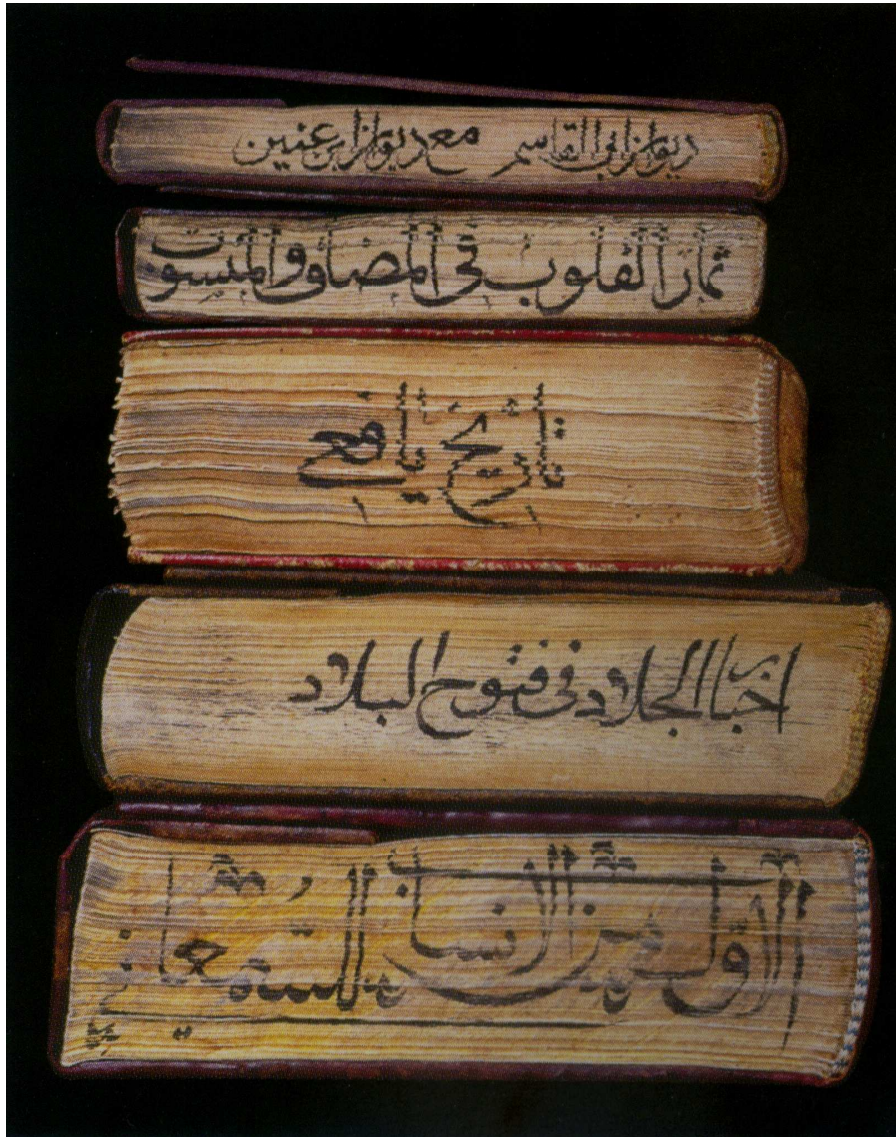 ديوان ابى القاسم مع ديوان ابن عنين
ثمار القلوب فى المضاف والمنسوب
تاريخ يافعى
اخبار الجلاد فى فتوح البلاد
الاول من الانساب للسمعانى